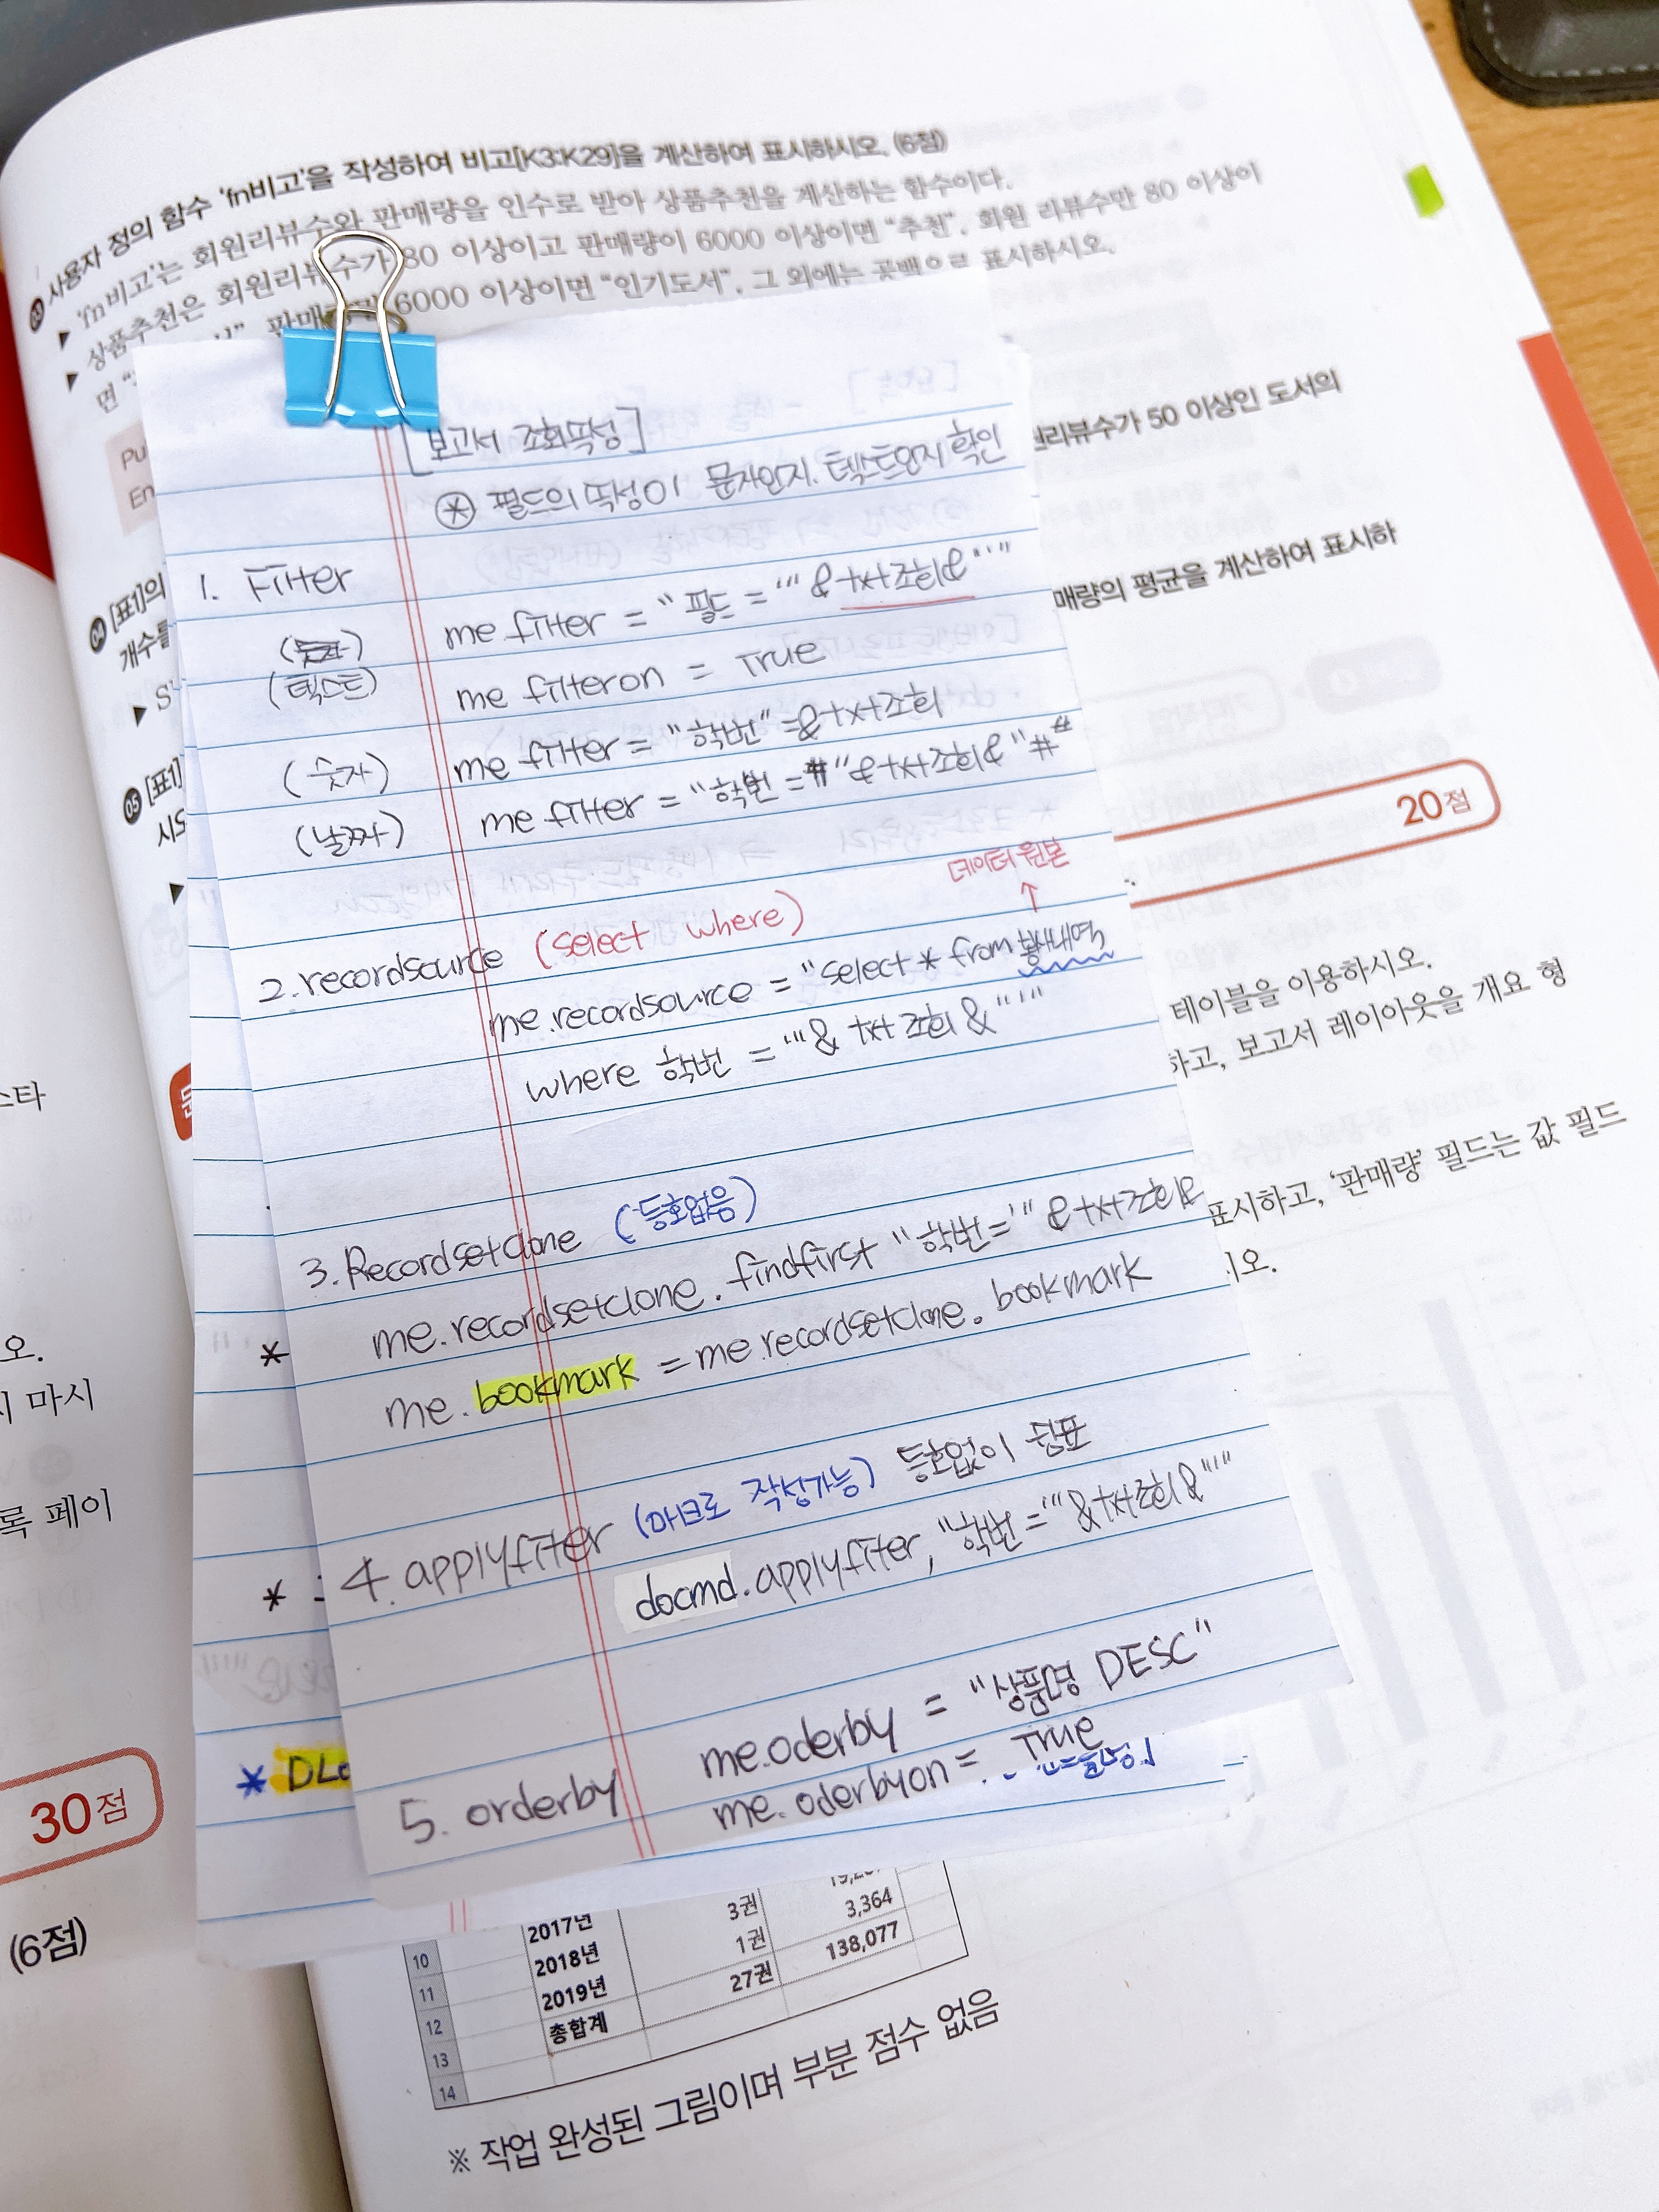 03 사용자 정의 함수 'fn비고'을 작성하여 비고[K3:K29]을 계산하여 표시하시오. (6점)
▶ 'fn비고'는 회원리뷰수와 판매량을 인수로 받아 상품추천을 계산하는 함수이다.
▶ 상품추천은 회원리뷰수가 80 이상이고 판매량이 6000 이상이면 "추천", 회원 리뷰수만 80 이상이
면 " 판매 6000 이상이면 "인기도서", 그 외에는 공백으로 표시하시오.
Pu
En
[보고서 조회속성]
원리뷰수가 50 이상인 도서의
⊛ 필드의 속성이 문자인지. 텍스트인지 확인
04 [표1]의
개수를
▶ S
1. Filter
(텍스트) me filter = "필드 = '" & txt조회 & "'"
매량의 평균을 계산하여 표시하
me filteron = True
05 [표1]
시오
▶
(숫자) me filter = "학번" = & txt조회
(날짜) me filter = "학번 = #" & txt조회 & "#"
20점
데이터 원본
↑
2. recordsource (select where)
me.recordsource = "select * from
where 학번 = '" & txt조회 & "'"
테이블을 이용하시오.
하고, 보고서 레이아웃을 개요 형
3. Recordsetclone (등호없음)
표시하고, '판매량' 필드는 값 필드
me.recordsetclone. findfirst "학번 = '" & txt조회
시오.
* me. bookmark = me.recordsetclone. bookmark
4. applyfilter (매크로 작성가능) 등호없이 쉼표
* docmd.applyfilter, "학번 = '" & txt조회 & "'"
5. orderby me.oderby = "상품명 DESC"
me. oderbyon = True
* DLo
스타
오.
시 마시
록 페이
30점
(6점)
2017년 3권
10 2018년 1권 3,364
11 2019년 27권 138,077
12 총합계
13
14
※ 작업 완성된 그림이며 부분 점수 없음